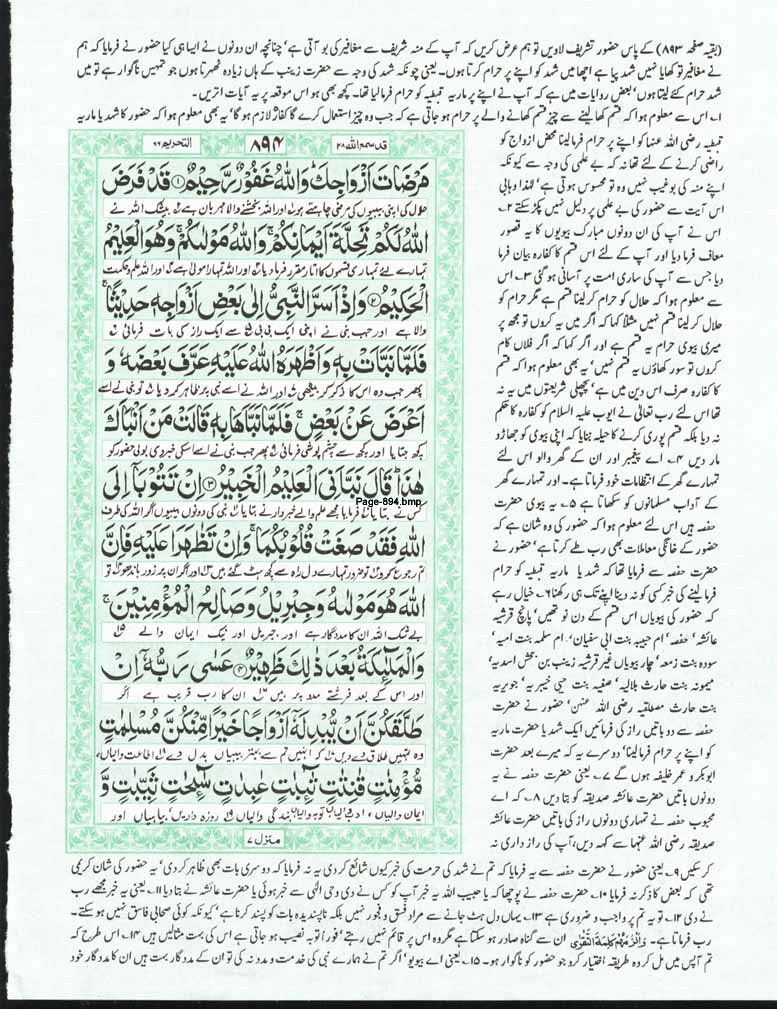 (بقیہ صفحہ ۸۹۳) کے پاس حضور تشریف لاویں تو ہم عرض کریں کہ آپ کے منہ شریف سے مغافیر کی بو آتی ہے، چنانچہ ان دونوں نے ایسا ہی کیا حضور نے فرمایا کہ ہم
نے مغافیر تو کھایا نہیں شہد پیا ہے اچھا میں شہد کو اپنے پر حرام کرتا ہوں۔ یعنی چونکہ شہد کی وجہ سے حضرت زینب کے ہاں زیادہ ٹھہرتا ہوں جو تمہیں ناگوار ہے تو میں
شہد حرام کئے لیتا ہوں، بعض روایات میں ہے کہ آپ نے اپنے پر ماریہ قبطیہ کو حرام فرمالیا تھا۔ کچھ بھی ہو اس موقعہ پر یہ آیات اتریں۔
۱۔ اس سے معلوم ہوا کہ قسم کھا لینے سے چیز قسم کھانے والے پر حرام ہو جاتی ہے کہ جب وہ چیز استعمال کرے گا کفارہ لازم ہو گا، یہ بھی معلوم ہوا کہ حضور کا شہد یا ماریہ
قبطیہ رضی اللہ عنہا کو اپنے پر حرام فرمالینا محض ازواج کو
راضی کرنے کے لئے تھا نہ کہ بے علمی کی وجہ سے کیونکہ
اپنے منہ کی بو غیب نہیں وہ تو محسوس ہوتی ہے، لہذا وہابی
اس آیت سے حضور کی بے علمی پر دلیل نہیں پکڑ سکتے ۲۔
اس نے آپ کی ان دونوں مبارک بیویوں کا یہ قصور
معاف فرما دیا اور آپ کے لئے اس قسم کا کفارہ بیان فرما
دیا جس سے آپ کی ساری امت پر آسانی ہو گئی ۳۔ اس
سے معلوم ہوا کہ حلال کو حرام کر لینا قسم ہے مگر حرام کو
حلال کر لینا قسم نہیں مثلاً کہا کہ اگر میں یہ کروں تو مجھ پر
میری بیوی حرام یہ قسم ہے اور اگر کہا کہ اگر فلاں کام
کروں تو سور کھاؤں یہ قسم نہیں، یہ بھی معلوم ہوا کہ قسم
کا کفارہ صرف اس دین میں ہے، پچھلی شریعتوں میں یہ نہ
تھا اس لئے رب تعالیٰ نے ایوب علیہ السلام کو کفارہ کا حکم
نہ دیا بلکہ قسم پوری کرنے کا حیلہ بتایا کہ اپنی بیوی کو جھاڑو
مار دیں ۴۔ اے پیغمبر اور ان کے گھر والو اس لئے
تمہارے گھر کے انتظامات خود فرماتا ہے۔ اور تمہارے گھر
کے آداب مسلمانوں کو سکھاتا ہے ۵۔ یہ بیوی حضرت
حفصہ ہیں اس لئے معلوم ہوا کہ حضور کی وہ شان ہے کہ
حضور کے خانگی معاملات بھی رب طے کرتا ہے، حضور نے
حضرت حفصہ سے فرمایا تھا کہ شہد یا ماریہ قبطیہ کو حرام
فرمالینے کی خبر کسی کو نہ دینا اپنے تک ہی رکھنا ۶۔ خیال رہے
کہ حضور کی بیویاں اس قسم کے دن نو تھیں، پانچ قرشیہ
عائشہ، حفصہ، ام حبیبہ بنت ابی سفیان، ام سلمہ بنت امیہ،
سودہ بنت زمعہ، چار بیویاں غیر قرشیہ زینب بن جحش اسدیہ،
میمونہ بنت حارث ہلالیہ، صفیہ بنت حیی خیبریہ، جویریہ
بنت حارث مصطلقیہ رضی اللہ عنہن، حضور نے حضرت
حفصہ سے دو باتیں راز کی فرمائیں ایک شہد یا حضرت ماریہ
کو اپنے پر حرام فرمالینا، دوسرے یہ کہ میرے بعد حضرت
ابو بکر و عمر خلیفہ ہوں گے ۷۔ یعنی حضرت حفصہ نے یہ
دونوں باتیں حضرت عائشہ صدیقہ کو بتا دیں ۸۔ کہ اے
محبوب حفصہ نے تمہاری دونوں راز کی باتیں حضرت عائشہ
صدیقہ رضی اللہ عنہا سے کہہ دیں، آپ کی راز داری نہ
التحریم ۶۶
۸۹۴
قد سمع اللہ ۲۸
مَرْضَاتَ اَزْوَاجِكَ وَاللّٰهُ غَفُوْرٌ رَّحِيْمٌ ۝۱ قَدْ فَرَضَ
حلال کی اپنی بیبیوں کی مرضی چاہتے ہو اور اللہ بخشنے والا مہربان ہے بیشک اللہ نے
اللّٰهُ لَكُمْ تَحِلَّةَ اَيْمَانِكُمْ وَاللّٰهُ مَوْلٰىكُمْ وَهُوَ الْعَلِيْمُ
تمہارے لئے تمہاری قسموں کا اتار مقرر فرما دیا اور اللہ تمہارا مولیٰ ہے اور اللہ علم و حکمت
الْحَكِيْمُ ۝۲ وَاِذْ اَسَرَّ النَّبِيُّ اِلٰى بَعْضِ اَزْوَاجِهٖ حَدِيْثًا
والا ہے اور جب نبی نے اپنی ایک بی بی سے ایک راز کی بات فرمائی
فَلَمَّا نَبَّاَتْ بِهٖ وَاَظْهَرَهُ اللّٰهُ عَلَيْهِ عَرَّفَ بَعْضَهٗ وَ
پھر جب وہ اس کا ذکر کر بیٹھی اور اللہ نے اسے نبی پر ظاہر کر دیا تو نبی نے اسے
اَعْرَضَ عَنْ بَعْضٍ فَلَمَّا نَبَّاَهَا بِهٖ قَالَتْ مَنْ اَنْۢبَاَكَ
کچھ جتایا اور کچھ سے چشم پوشی فرمائی پھر جب نبی نے اسے اسکی خبر دی بولی حضور کو
هٰذَا قَالَ نَبَّاَنِيَ الْعَلِيْمُ الْخَبِيْرُ ۝۳ اِنْ تَتُوْبَاۤ اِلَى
کس نے بتایا فرمایا مجھے علم والے خبردار نے بتایا نبی کی دونوں بیبیوں اگر اللہ کی طرف
Page-894.bmp
اللّٰهِ فَقَدْ صَغَتْ قُلُوْبُكُمَا وَاِنْ تَظٰهَرَا عَلَيْهِ فَاِنَّ
تم رجوع کرو تو ضرور تمہارے دل راہ سے کچھ ہٹ گئے ہیں اور اگر ان پر زور باندھو تو
اللّٰهَ هُوَ مَوْلٰىهُ وَجِبْرِيْلُ وَصَالِحُ الْمُؤْمِنِيْنَ
بے شک اللہ ان کا مددگار ہے اور جبریل اور نیک ایمان والے
وَالْمَلٰٓئِكَةُ بَعْدَ ذٰلِكَ ظَهِيْرٌ ۝۴ عَسٰى رَبُّهٗۤ اِنْ
اور اس کے بعد فرشتے مدد پر ہیں ان کا رب قریب ہے اگر
طَلَّقَكُنَّ اَنْ يُّبْدِلَهٗۤ اَزْوَاجًا خَيْرًا مِّنْكُنَّ مُسْلِمٰتٍ
وہ تمہیں طلاق دے دیں کہ انہیں تم سے بہتر بیبیاں بدل دے اطاعت والیاں،
مُّؤْمِنٰتٍ قٰنِتٰتٍ تٰٓئِبٰتٍ عٰبِدٰتٍ سٰٓئِحٰتٍ ثَيِّبٰتٍ وَّ
ایمان والیاں، ادب والیاں توبہ والیاں بندگی والیاں روزہ داریں، بیاہیاں اور
منزل ۷
کر سکیں ۹۔ یعنی حضور نے حضرت حفصہ سے یہ فرمایا کہ تم نے شہد کی حرمت کی خبر کیوں شائع کر دی یہ نہ فرمایا کہ دوسری بات بھی ظاہر کر دی، یہ حضور کی شان کریمی
تھی کہ بعض کا ذکر نہ فرمایا ۱۰۔ حضرت حفصہ نے پوچھا کہ یا حبیب اللہ یہ خبر آپ کو کس نے دی وحی الٰہی سے خبر ہوئی یا حضرت عائشہ نے بتا دیا ۱۱۔ یعنی یہ خبر مجھے رب
نے دی ۱۲۔ تو یہ تم پر واجب و ضروری ہے ۱۳۔ یہاں دل ہٹ جانے سے مراد فسق و فجور نہیں بلکہ ناپسندیدہ بات کو پسند کرنا ہے، کیونکہ کوئی صحابی فاسق نہیں ہو سکتے۔
رب فرماتا ہے۔ وَاَلْزَمَهُمْ كَلِمَةَ التَّقْوٰى ان سے گناہ صادر ہو سکتا ہے مگر وہ اس پر قائم نہیں رہتے، فوراً توبہ نصیب ہو جاتی ہے اس کی بہت مثالیں ہیں ۱۴۔ اس طرح کہ
تم آپس میں مل کر وہ طریقہ اختیار کرو جو حضور کو ناگوار ہو۔ ۱۵۔ یعنی اے بیویو، اگر تم نے ہمارے نبی کی خدمت و مدد نہ کی تو ان کے مددگار بہت ہیں ان کا مددگار خود